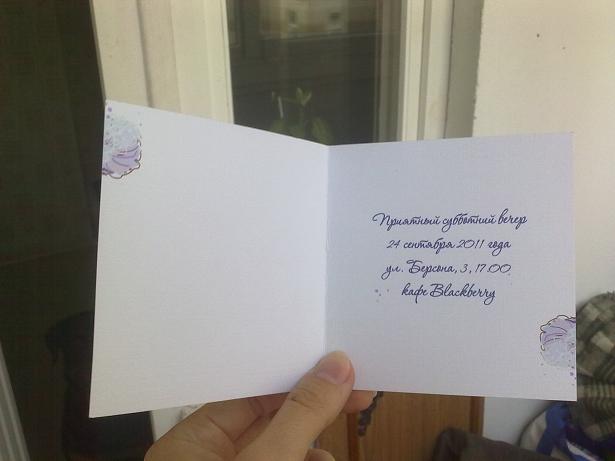 Приятный субботний вечер
24 сентября 2011 года
ул. Берсона, 3, 17.00
кафе Blackberry